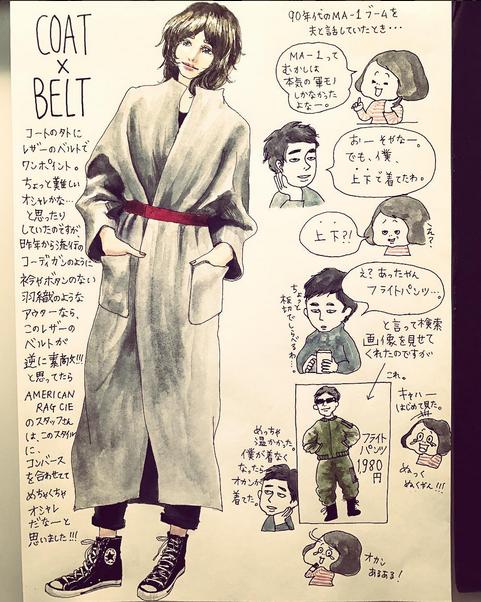 COAT
×
BELT
コートの外に
レザーのベルトで
ワンポイント。
ちょっと難しい
オシャレかな…
と思ったり
していたのですが
昨年から流行の
コーディガンのように
衿やボタンのない
羽織のような
アウターなら、
このレザーの
ベルトが
逆に素敵!!!
と思ってたら
AMERICAN
RAG CIE
のスタッフさん
は、このスタイル
に、
コンバース
を合わせてて
めちゃくちゃ
オシャレ
だなーと
思いました!!!
90年代のMA-1ブームを
夫と話していたとき…
MA-1って
むかしは
本気の軍モノ
しかなかった
よなー。
おーそやなー。
でも、僕、
上下で着てたわ。
上下?!
え?
え?あったやん
フライトパンツ…。
ちょっと
検索しらべるわ…。
と言って検索
画像を見せて
くれたのですが
これ。
フライト
パンツ
1,980
円
キャハー
はじめて見た。
ぬっく
ぬくやん!!!
めっちゃ
温かかった。
僕が着なく
なったら
オカンが
着てた。
オカン
あるある!